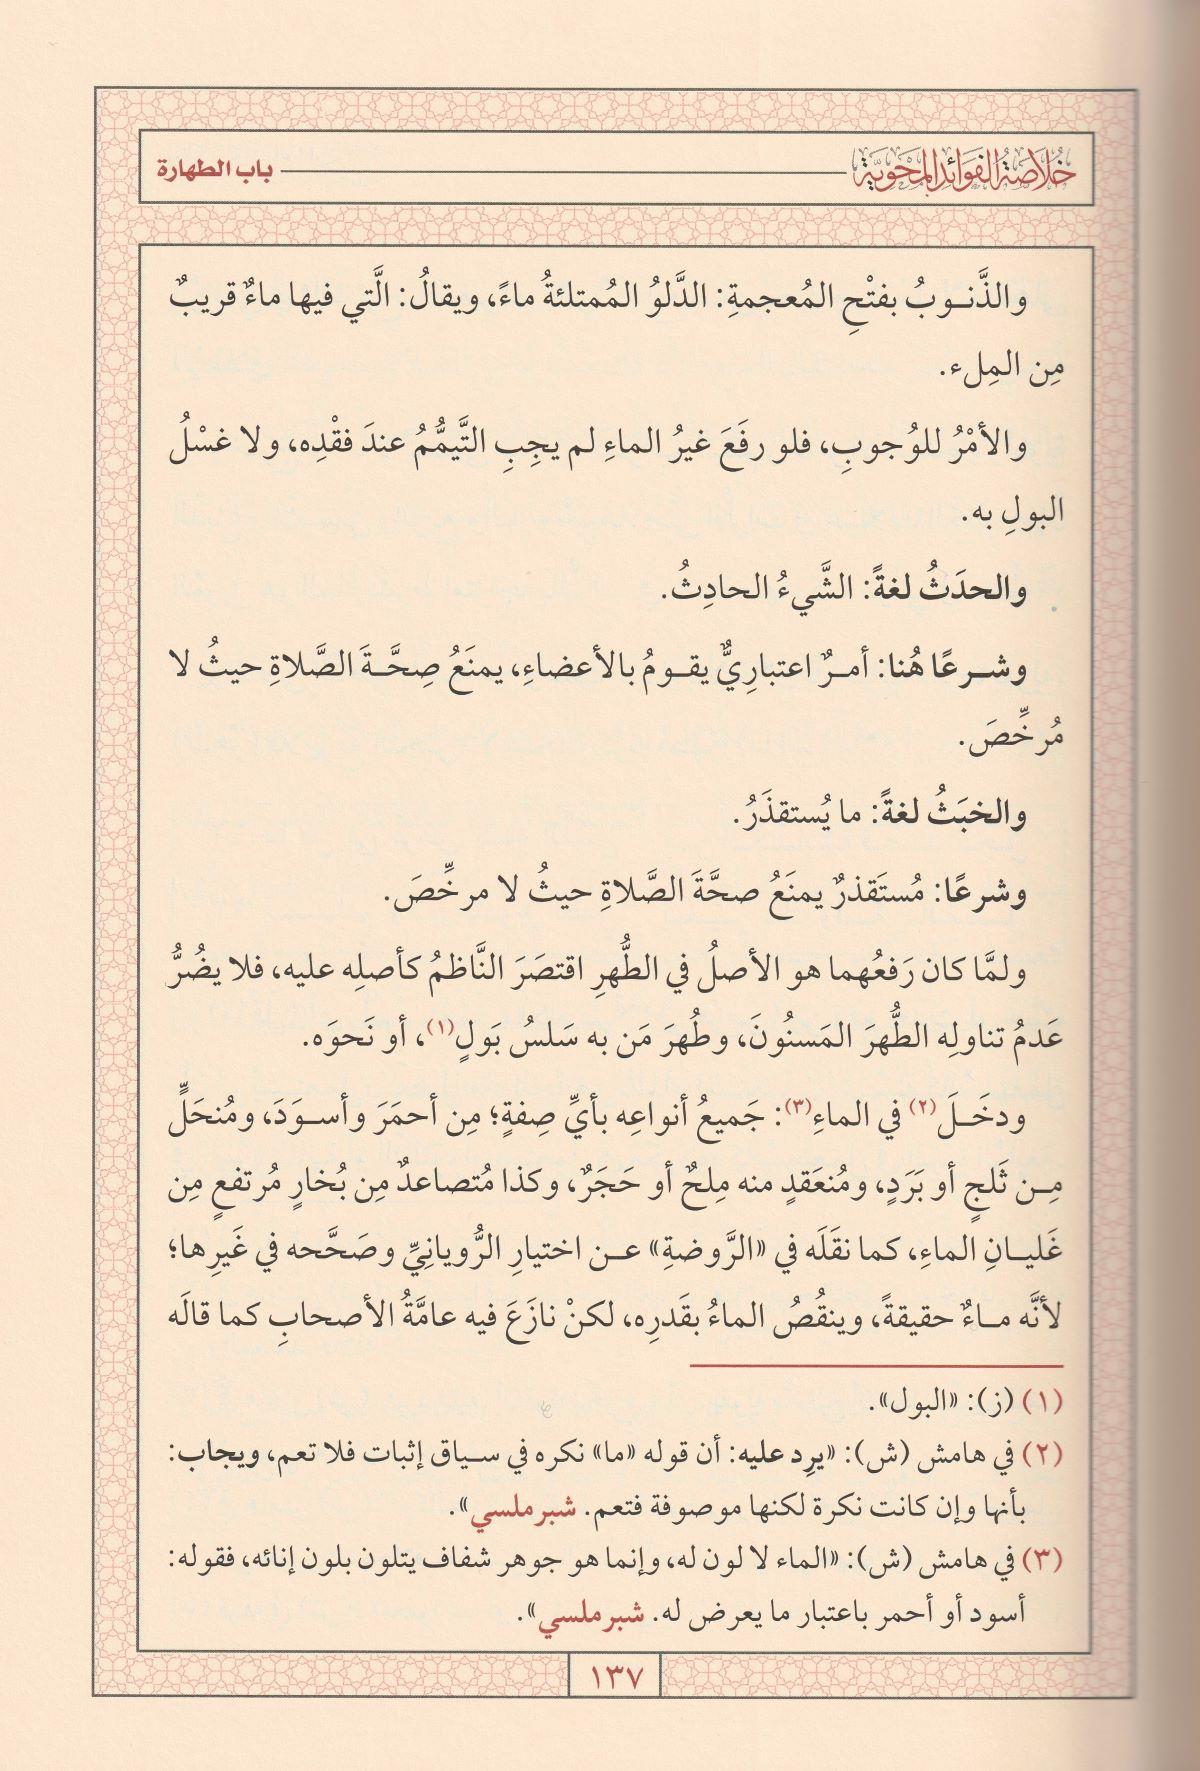 خُلَاصَةُ الفَوَائِدِ المَحْوِيَّة
باب الطهارة
والذَّنـوبُ بفتْحِ المُعجمةِ: الدَّلوُ المُمتلئةُ ماءً، ويقالُ: الَّتي فيها ماءٌ قريبٌ
مِن المِلء.
والأمْرُ للوُجوبِ، فلو رفَعَ غيرُ الماءِ لم يجِبِ التَّيمُّمُ عندَ فقْدِه، ولا غسْلُ
البولِ به.
والحدَثُ لغةً: الشَّيءُ الحادِثُ.
وشـرعًا هُنا: أمـرٌ اعتبارِيٌّ يقـومُ بالأعضاءِ، يمنَعُ صِحَّـةَ الصَّلاةِ حيثُ لا
مُرخِّصَ.
والخبَثُ لغةً: ما يُستقذَرُ.
وشرعًا: مُستَقذرٌ يمنَعُ صحَّةَ الصَّلاةِ حيثُ لا مرخِّصَ.
ولمَّا كان رَفعُهما هو الأصلُ في الطُّهرِ اقتصَرَ النَّاظمُ كأصلِه عليه، فلا يضُرُّ
عَدمُ تناولِه الطُّهرَ المَسنُونَ، وطُهرَ مَن به سَلسُ بَولٍ(١)، أو نَحوَه.
ودخَـلَ(٢) في الماءِ(٣): جَميعُ أنواعِه بأيِّ صِفةٍ؛ مِن أحمَرَ وأسـوَدَ، ومُنحَلٍّ
مِـن ثَلجٍ أو بَرَدٍ، ومُنعَقدٍ منه مِلحٌ أو حَجَرٌ، وكذا مُتصاعدٌ مِن بُخارٍ مُرتفعٍ مِن
غَليـانِ الماءِ، كما نقَلَه في «الرَّوضةِ» عـن اختيارِ الرُّويانِيِّ وصَحَّحه في غَيرِها؛
لأنَّه مـاءٌ حقيقةً، وينقُصُ الماءُ بقَدرِه، لكنْ نازَعَ فيه عامَّةُ الأصحابِ كما قالَه
(١) (ز): «البول».
(٢) في هامش (ش): «يرِد عليه: أن قوله «ما» نكره في سـياق إثبات فلا تعم، ويجاب:
بأنها وإن كانت نكرة لكنها موصوفة فتعم. شبرملسي».
(٣) في هامش (ش): «الماء لا لون له، وإنما هو جوهر شفاف يتلون بلون إنائه، فقوله:
أسود أو أحمر باعتبار ما يعرض له. شبرملسي».
١٣٧